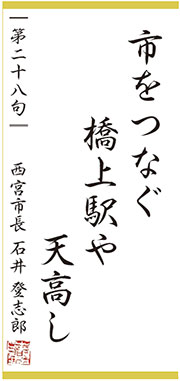 市をつなぐ
橋上駅や
天高し
第二十八句
西宮市長 石井 登志郎